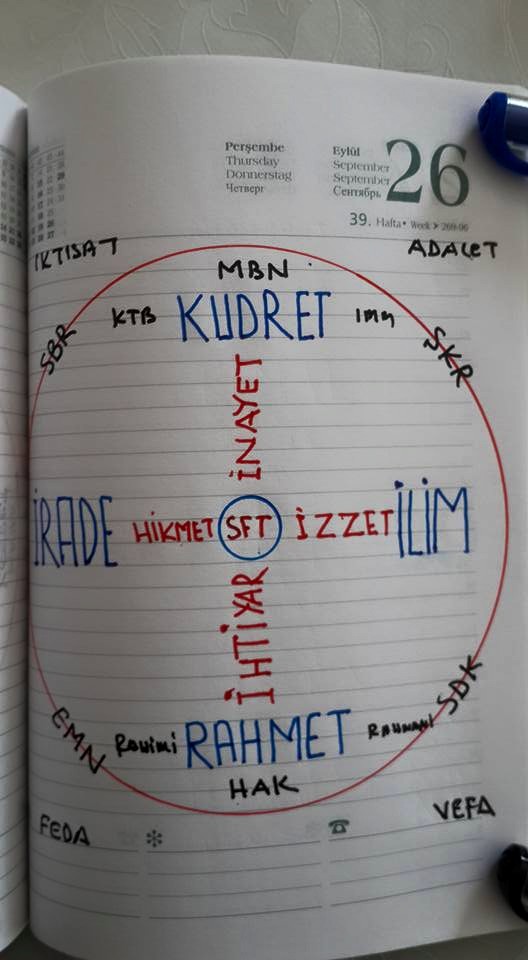 Perşembe
Thursday
Donnerstag
Четверг
Eylül
September
September
Сентябрь
26
39. Hafta • Week > 269-96
İKTISAT
ADALET
MBN
KTB KUDRET IMM
SBR
ŞKR
İNAYET
İRADE HİKMET SFT İZZET İLİM
İHTİYAR
SDK
EMN
Rahimi RAHMET RAHMANİ
HAK
FEDA
VEFA